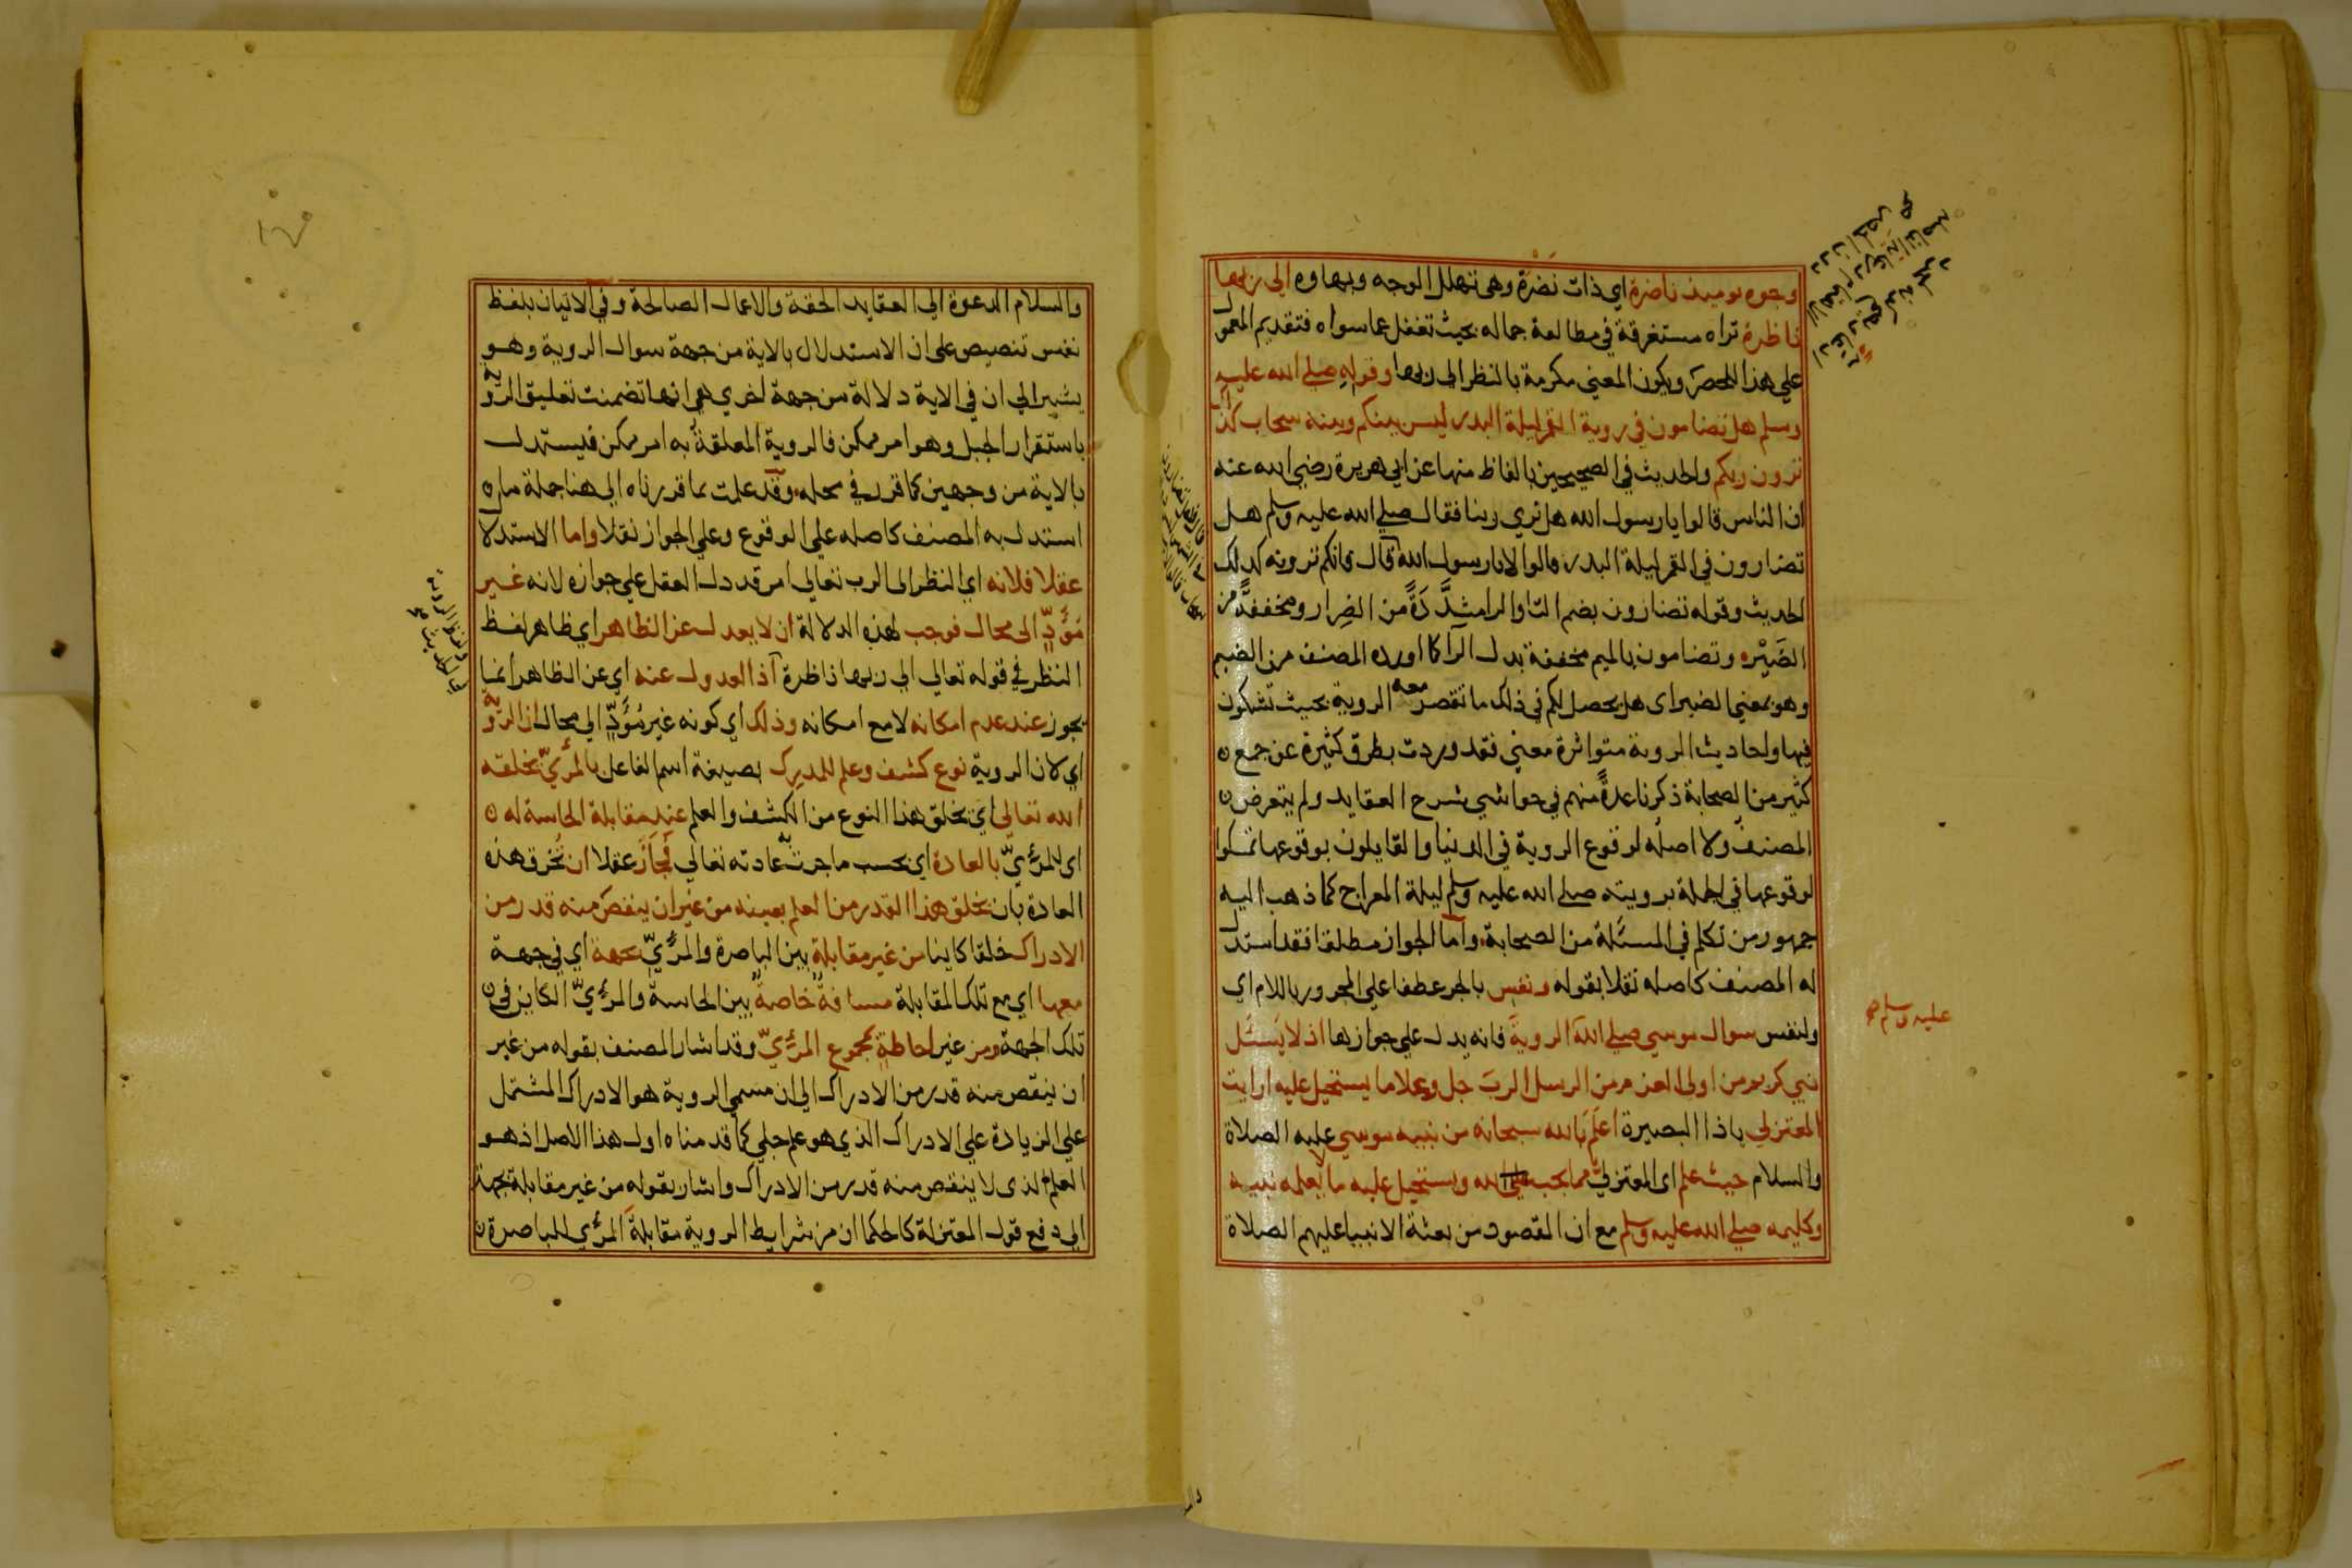 وجوه يوميذ ناضرة اي ذات نضرة وهي تهلل الوجه وبهاوه الي ربها
ناظرة تراه مستغرقة في مطالعة جماله بحيث تغفل عما سواه فتقديم المعمول
علي هذا للحصر ويكون المعني مكرمة بالنظر الي ربها وقوله صلي الله عليه
وسلم هل تضامون في روية القمر ليلة البدر ليس بينكم وبينه سحاب كذلك
ترون ربكم والحديث في الصحيحين بالفاظ منها عن ابي هريرة رضي الله عنه
ان الناس قالوا يا رسول الله هل نري ربنا فقال صلي الله عليه وسلم هل
تضارون في القمر ليلة البدر قالوا لا يا رسول الله قال فانكم ترونه كذلك
الحديث وقوله تضارون بضم التا والرا مشدَّدَةً من الضِرار ومخففةً من
الضَيْره وتضامون بالميم مخففة بدل الرا كما اورده المصنف من الضيم
وهو بمعني الضير اى هل يحصل لكم في ذلك ما تقصر معه الروية بحيث تشكون
فيها واحاديث الروية متواترة معني فقد وردت بطرق كثيرة عن جمع
كثير من الصحابة ذكرنا عدةً منهم في حواشي شرح العقايد ولم يتعرض
المصنف ولا اصله لوقوع الروية في الدنيا والقايلون بوقوعها تمسكوا
لوقوعها في الجملة برويته صلي الله عليه وسلم ليلة المعراج كما ذهب اليه
جمهور من تكلم في المسئلة من الصحابة واما الجواز مطلقا فقد استدل
له المصنف كاصله نقلا بقوله ونفس بالجر عطفا علي المجرور باللام اي
ولنفس سوال موسي صلي الله الروية فانه يدل علي جوازها اذ لا يَسئَل
عليه وسلم صح
نبي كريم من اولى العزم من الرسل الرب جل وعلا ما يستحيل عليه ارايت
المعتزلي يا ذا البصيرة اعلَم بالله سبحانه من نبيه موسي عليه الصلاة
والسلام حيث علم اى المعتزلي ما يجب لله ويستحيل عليه ما لا يعلمه نبيه
وكليمه صلي الله عليه وسلم مع ان المقصود من بعثة الانبيا عليهم الصلاة
والسلام الدعوة الي العقايد الحقة والاعمال الصالحة وفي الاتيان بلفظ
نفس تنصيص علي ان الاستدلال بالاية من جهة سوال الروية وهو
يشير الي ان في الاية دلالة من جهة اخري هي انها تضمنت تعليق الروية
باستقرار الجبل وهو امر ممكن فالروية المعلقة به امر ممكن فليستدل
بالاية من وجهين كما قرر في محله وقد علمت بما قررناه الي هنا جملة ما
استدل به المصنف كاصله علي الوقوع وعلي الجواز نقلا واما الاستدلال
عقلا فلانه اي النظر الى الرب تعالي امر قد دل العقل علي جوازه لانه غير
مُؤَدٍّ الى محال فوجب لهذه الدلالة ان لا يعدل عن الظاهر اي ظاهر لفظ
النظر في قوله تعالي الي ربها ناظرة اذ العدول عنه اي عن الظاهر انما
يجوز عند عدم امكانه لا مع امكانه وذلك اي كونه غير مُؤَدٍّ الي محال ان الروية
اي لان الروية نوع كشف وعلم للمدرِك بصيغة اسم الفاعل بالمرئيّ يخلقه
الله تعالي اي يخلق هذا النوع من الكشف والعلم عند مقابلة الحاسة له
اى للمرئيّ بالعادة اي بحسب ما جرت به عادته تعالي فجاز عقلا ان تُخرق هذه
العادة بان يخلق هذا القدر من العلم بعينه من غير ان ينقص منه قدر من
الادراك خلقا كاينا من غير مقابلةٍ بين الباصرة والمرئيّ بجهة اي في جهة
معها اي مع تلك المقابلة مسافةٌ خاصةٌ بين الحاسة والمرئيّ الكاين في
تلك الجهة ومن غير احاطةٍ بمجموع المرئيّ وقد اشار المصنف بقوله من غير
ان ينقص منه قدر من الادراك الي ان مسمي الروية هو الادراك المشتمل
علي الزيادة علي الادراك الذي هو علم جلي كما قدمناه اول هذا الاصل اذ هو
العلم الذى لا ينقص منه قدر من الادراك واشار بقوله من غير مقابلة بجهة
الي دفع قول المعتزلة كالحكما ان من شرايط الروية مقابلةَ المرئي للباصرة